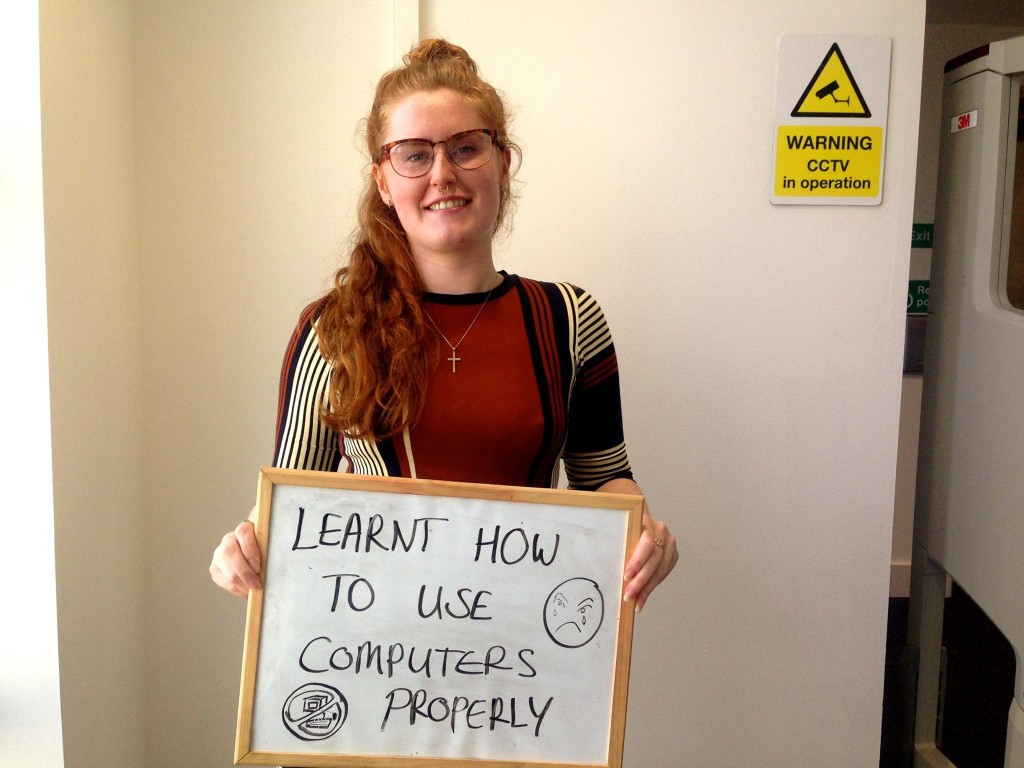 WARNING
CCTV
in operation
3M
Exit
LEARNT HOW
TO USE
COMPUTERS
PROPERLY